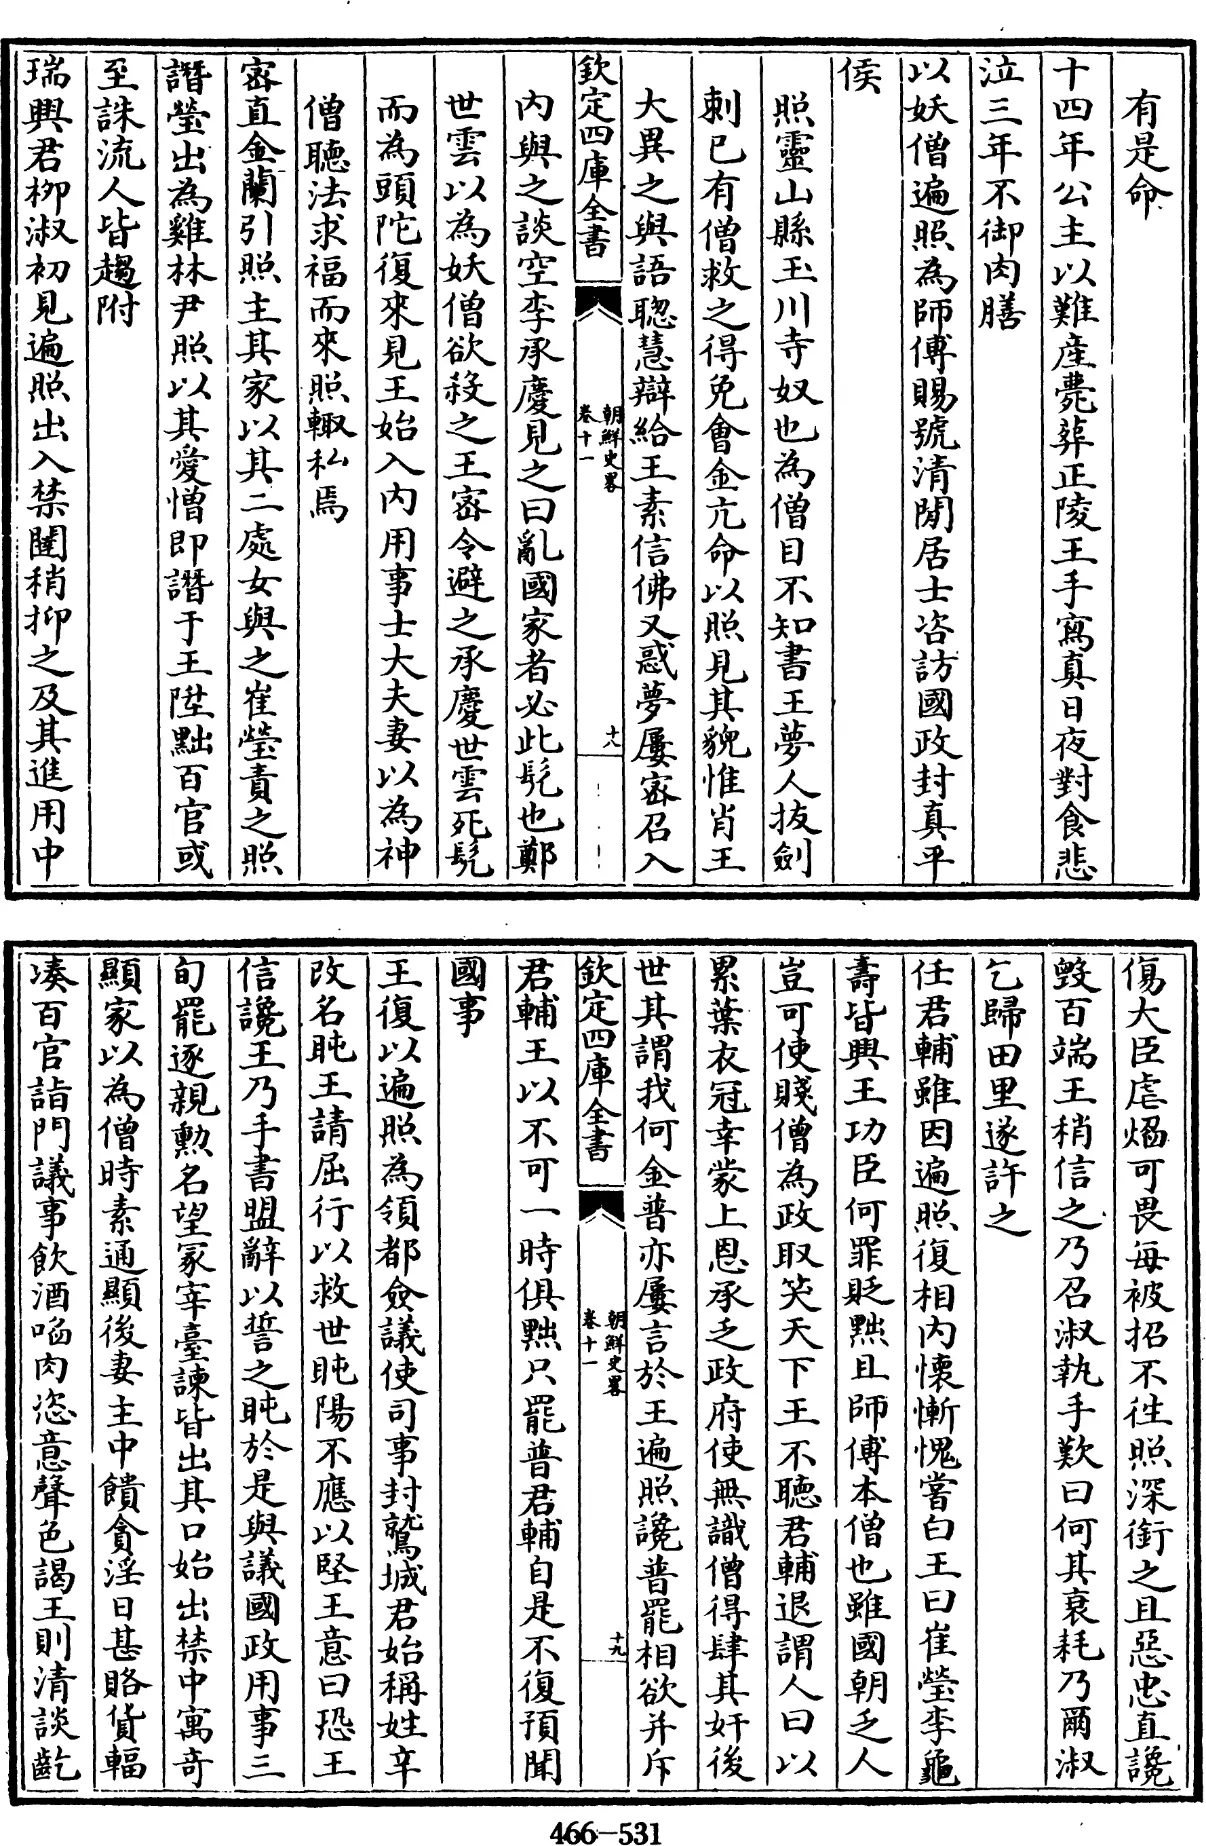 有是命
十四年公主以難産薨葬正陵王手寫真日夜對食悲
泣三年不御肉膳
以妖僧遍照為師傅賜號清閑居士咨訪國政封真平
侯
照靈山縣玉川寺奴也為僧目不知書王夢人拔劍
刺已有僧救之得免會金亢命以照見其貌惟肖王
大異之與語聰慧辯給王素信佛又惑夢屢宻召入
欽定四庫全書
朝鮮史畧
卷十一
十八
内與之談空李承慶見之曰亂國家者必此髠也鄭
世雲以為妖僧欲殺之王宻令避之承慶世雲死髠
而為頭陀復來見王始入内用事士大夫妻以為神
僧聽法求福而來照輙私焉
宻直金蘭引照主其家以其二處女與之崔瑩責之照
譖瑩出為雞林尹照以其愛憎即譖于王陞黜百官或
至誅流人皆趨附
瑞興君柳淑初見遍照出入禁闥稍抑之及其進用中
傷大臣虐焰可畏每被招不徃照深銜之且惡忠直讒
毁百端王稍信之乃召淑執手歎曰何其衰耗乃爾淑
乞歸田里遂許之
任君輔雖因遍照復相内懐慚愧嘗白王曰崔瑩李龜
壽皆興王功臣何罪貶黜且師傅本僧也雖國朝乏人
豈可使賤僧為政取笑天下王不聽君輔退謂人曰以
累葉衣冠幸蒙上恩承乏政府使無識僧得肆其奸後
世其謂我何金普亦屢言於王遍照讒普罷相欲并斥
欽定四庫全書
朝鮮史畧
卷十一
十九
君輔王以不可一時俱黜只罷普君輔自是不復預聞
國事
王復以遍照為領都僉議使司事封鷲城君始稱姓辛
改名旽王請屈行以救世旽陽不應以堅王意曰恐王
信讒王乃手書盟辭以誓之旽於是與議國政用事三
旬罷逐親勲名望冢宰臺諫皆出其口始出禁中寓奇
顯家以為僧時素通顯後妻主中饋貪淫日甚賂貨輻
湊百官詣門議事飲酒㗖肉恣意聲色謁王則清談齕
466-531